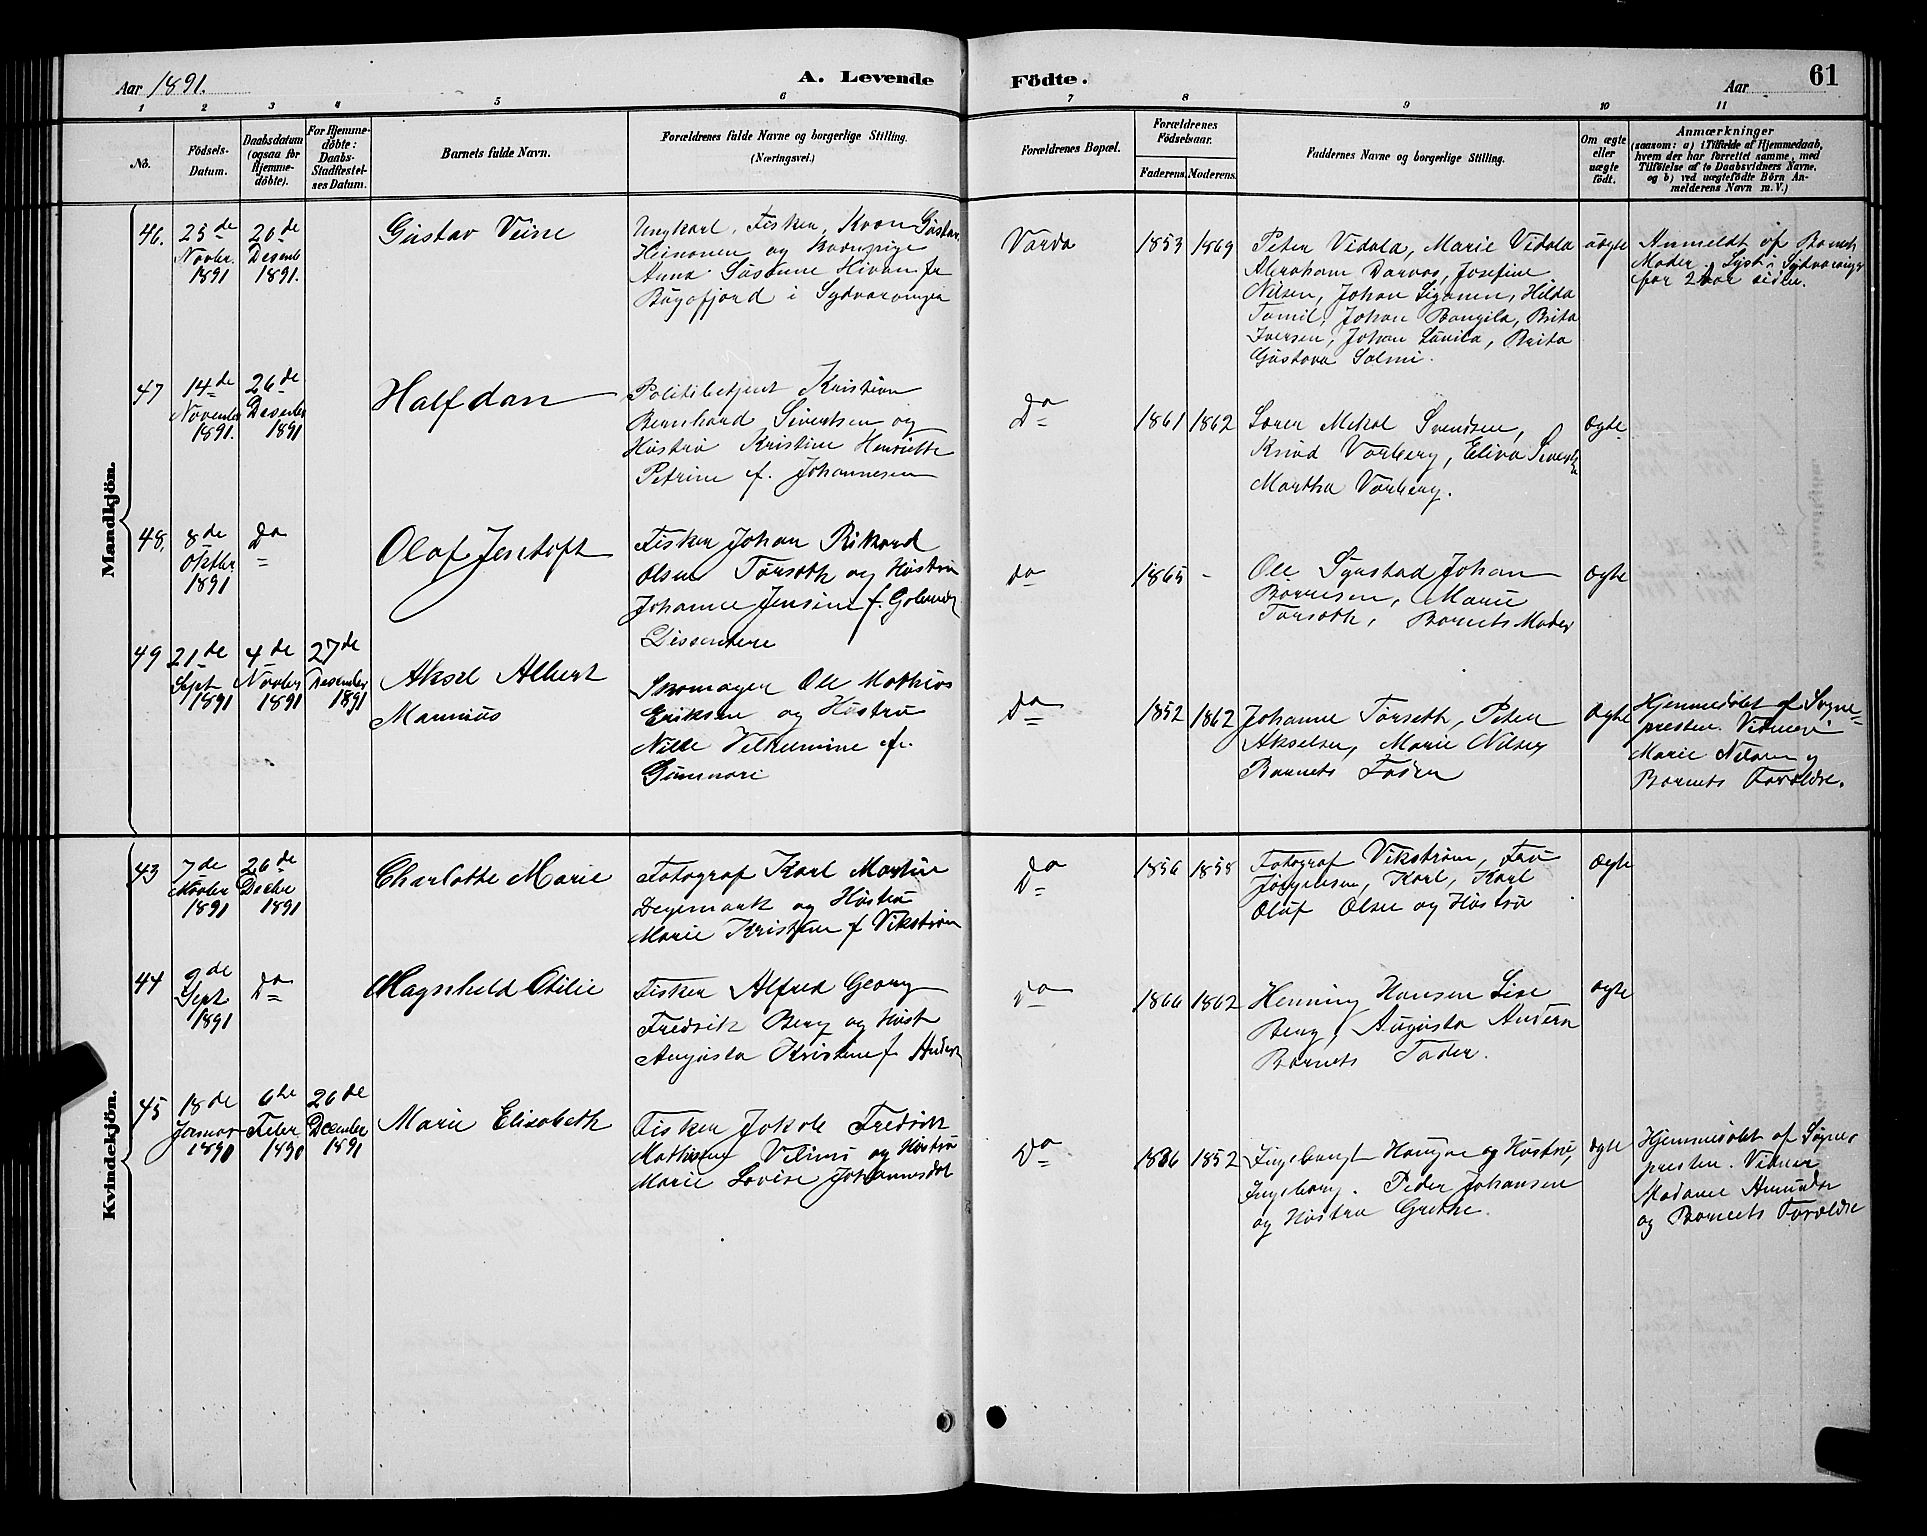 Aar 1891.
A. Levende
Födte.
Aar
61
1 2 3 4 5 6 7 8 9 10 11
No.
Födsels-
Datum.
Daabsdatum
(ogsaa for
Hjemme-
döbte).
For Hjemme-
döbte:
Daabs-
Stadfæstel-
ses Datum.
Barnets fulde Navn.
Forældrenes fulde Navne og borgerlige Stilling.
(Næringsvei.)
Forældrenes Bopæl.
Forældrenes
Födselsaar.
Faderens.
Moderens.
Faddernes Navne og borgerlige Stilling.
Om ægte
eller
uægte
födt.
Anmærkninger
(saasom: a) i Tilfælde af Hjemmedaab,
hvem der har forrettet samme, med
Tilföielse af to Daabsvidners Navne,
og b) ved uægtefödte Börn An-
melderens Navn m. V.)
Mandkjön.
46.
25de
Novbr.
1891
26de
Desemb
1891.
Gustav Veine
Ungkarl, Fisker, Kvæn Gustav
Heinonen og Barnepige
Anna Susanne Hivan fr
Bugøfjord i Sydvaranger
Vardø
1853
1869
Peter Vidala, Marie Vidala
Abraham Darvas, Josefine
Nilsen, Johan Siganen, Hilda
Tamil, Johan Bangila, Brita
Iversen, Johan Lavila, Brita
Gustava Salmi.
uægte
Anmeldt af Barnets
Moder. Sidst i Sydvaranger
for 2 Aar siden.
47
14de
November
1891.
26de
Desember
1891
Halfdan
Politibetjent Kristian
Bernhard Sivertsen og
Hustru Kristine Henriette
Petrine f. Johannesen
Do
1861
1862
Søren Mikal Svendsen,
Knud Varberg, Eliva Sivertsen
Martha Varberg.
Ægte
48.
8de
Oktbr.
1891
Do
Olaf Jentoft
Fisker Johan Rikard
Olsen Torseth og Hustru
Johanne Jensine f.
Dissentere
do
1865
-
Ole Synstad Johan
Børresen, Marie
Torseth, Barnets Moder
Ægte
49
21de
Sept
1891
4de
Novbr
1891
27de
Desember
1891
Aksel Albert
Marinius
Skomager Ole Mathias
Eriksen og Hustru
Nille Vilhelmine f.
Gunnari
Do
1852
1862
Johanne Torseth, Peter
Akselsen, Marie Nilsen
Barnets Fader
Ægte
Hjemmedøbt af Sogne-
presten. Vidner
Marie Nilsen og
Barnets Forældre.
Kvindekjön.
43
7de
Novbr
1891
26de
Decbr
1891
Charlotte Marie
Fotograf Karl Martin
Degermark og Hustru
Marie Kristine f Vikstrøm
Do
1856
1858
Fotograf Vikstrøm, Fru
Jørgensen, Karl, Karl
Oluf Olsen og Hustru
Ægte
44
9de
Sept
1891
Do
Magnhild Otilie
Fisker Alfred Georg
Fredrik Berg og Hust
Augusta Kristine f Anders
do
1866
1862
Henning Hansen Lise
Berg, Augusta Anders
Barnets Fader.
ægte
45
18de
Januar
1890
6te
Febr
1890
26de
December
1891
Marie Elisabeth
Fisker Jakob Fredrik
Mathisen og Hustru
Marie Lovise Johannesdat
Do
1852
Ingebrigt Haugen og Hustru,
Ingeborg. Peder Johansen
og Hustru Grethe.
Ægte
Hjemmedøbt af Sogne-
presten. Vidner
Madame Amundsen
og Barnets Forældre